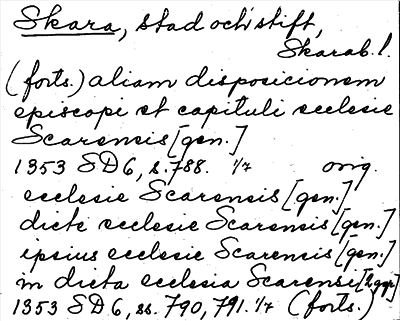 Skara, stad och stift,
Skarab. l.
(forts.) aliam disposicionem
episcopi et capituli ecclesie
Scarensis [gen.]
1353 SD 6, s. 788. 1/7 orig.
ecclesie Scarensis [gen.]
dicte ecclesie Scarensis [gen.]
ipsius ecclesie Scarensis [gen.]
in dicta ecclesia Scarensi [2 ggr]
1353 SD 6, ss. 790, 791. 1/7 (forts.)